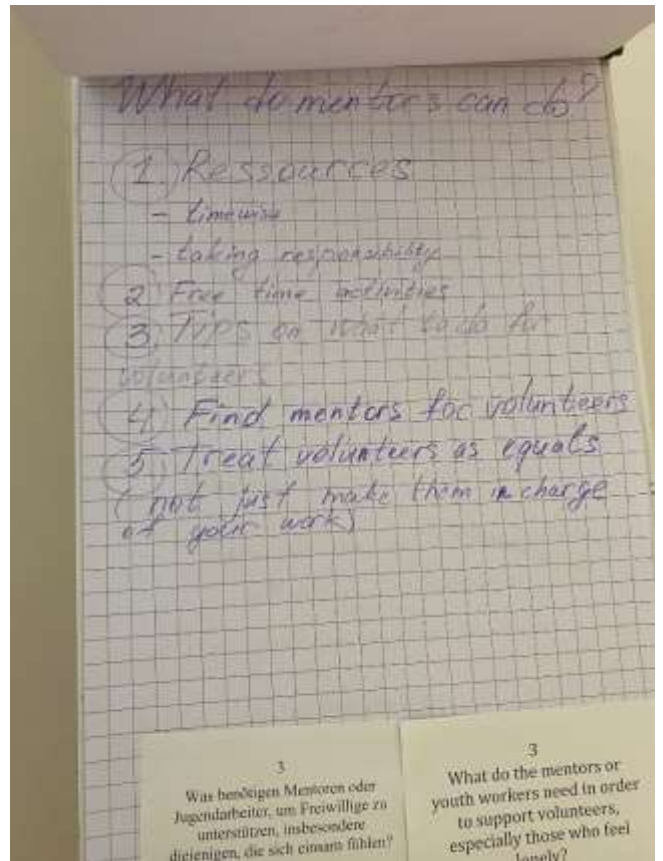 What do mentors can do?
1. Ressources
- timewise
- taking responsibility
2. Free time activities
3. Tips on what to do for
volunteers
4. Find mentors for volunteers
5. Treat volunteers as equals
(not just make them in charge
of your work)
3
Was benötigen Mentoren oder
Jugendarbeiter, um Freiwillige zu
unterstützen, insbesondere
diejenigen, die sich einsam fühlen?
3
What do the mentors or
youth workers need in order
to support volunteers,
especially those who feel
lonely?